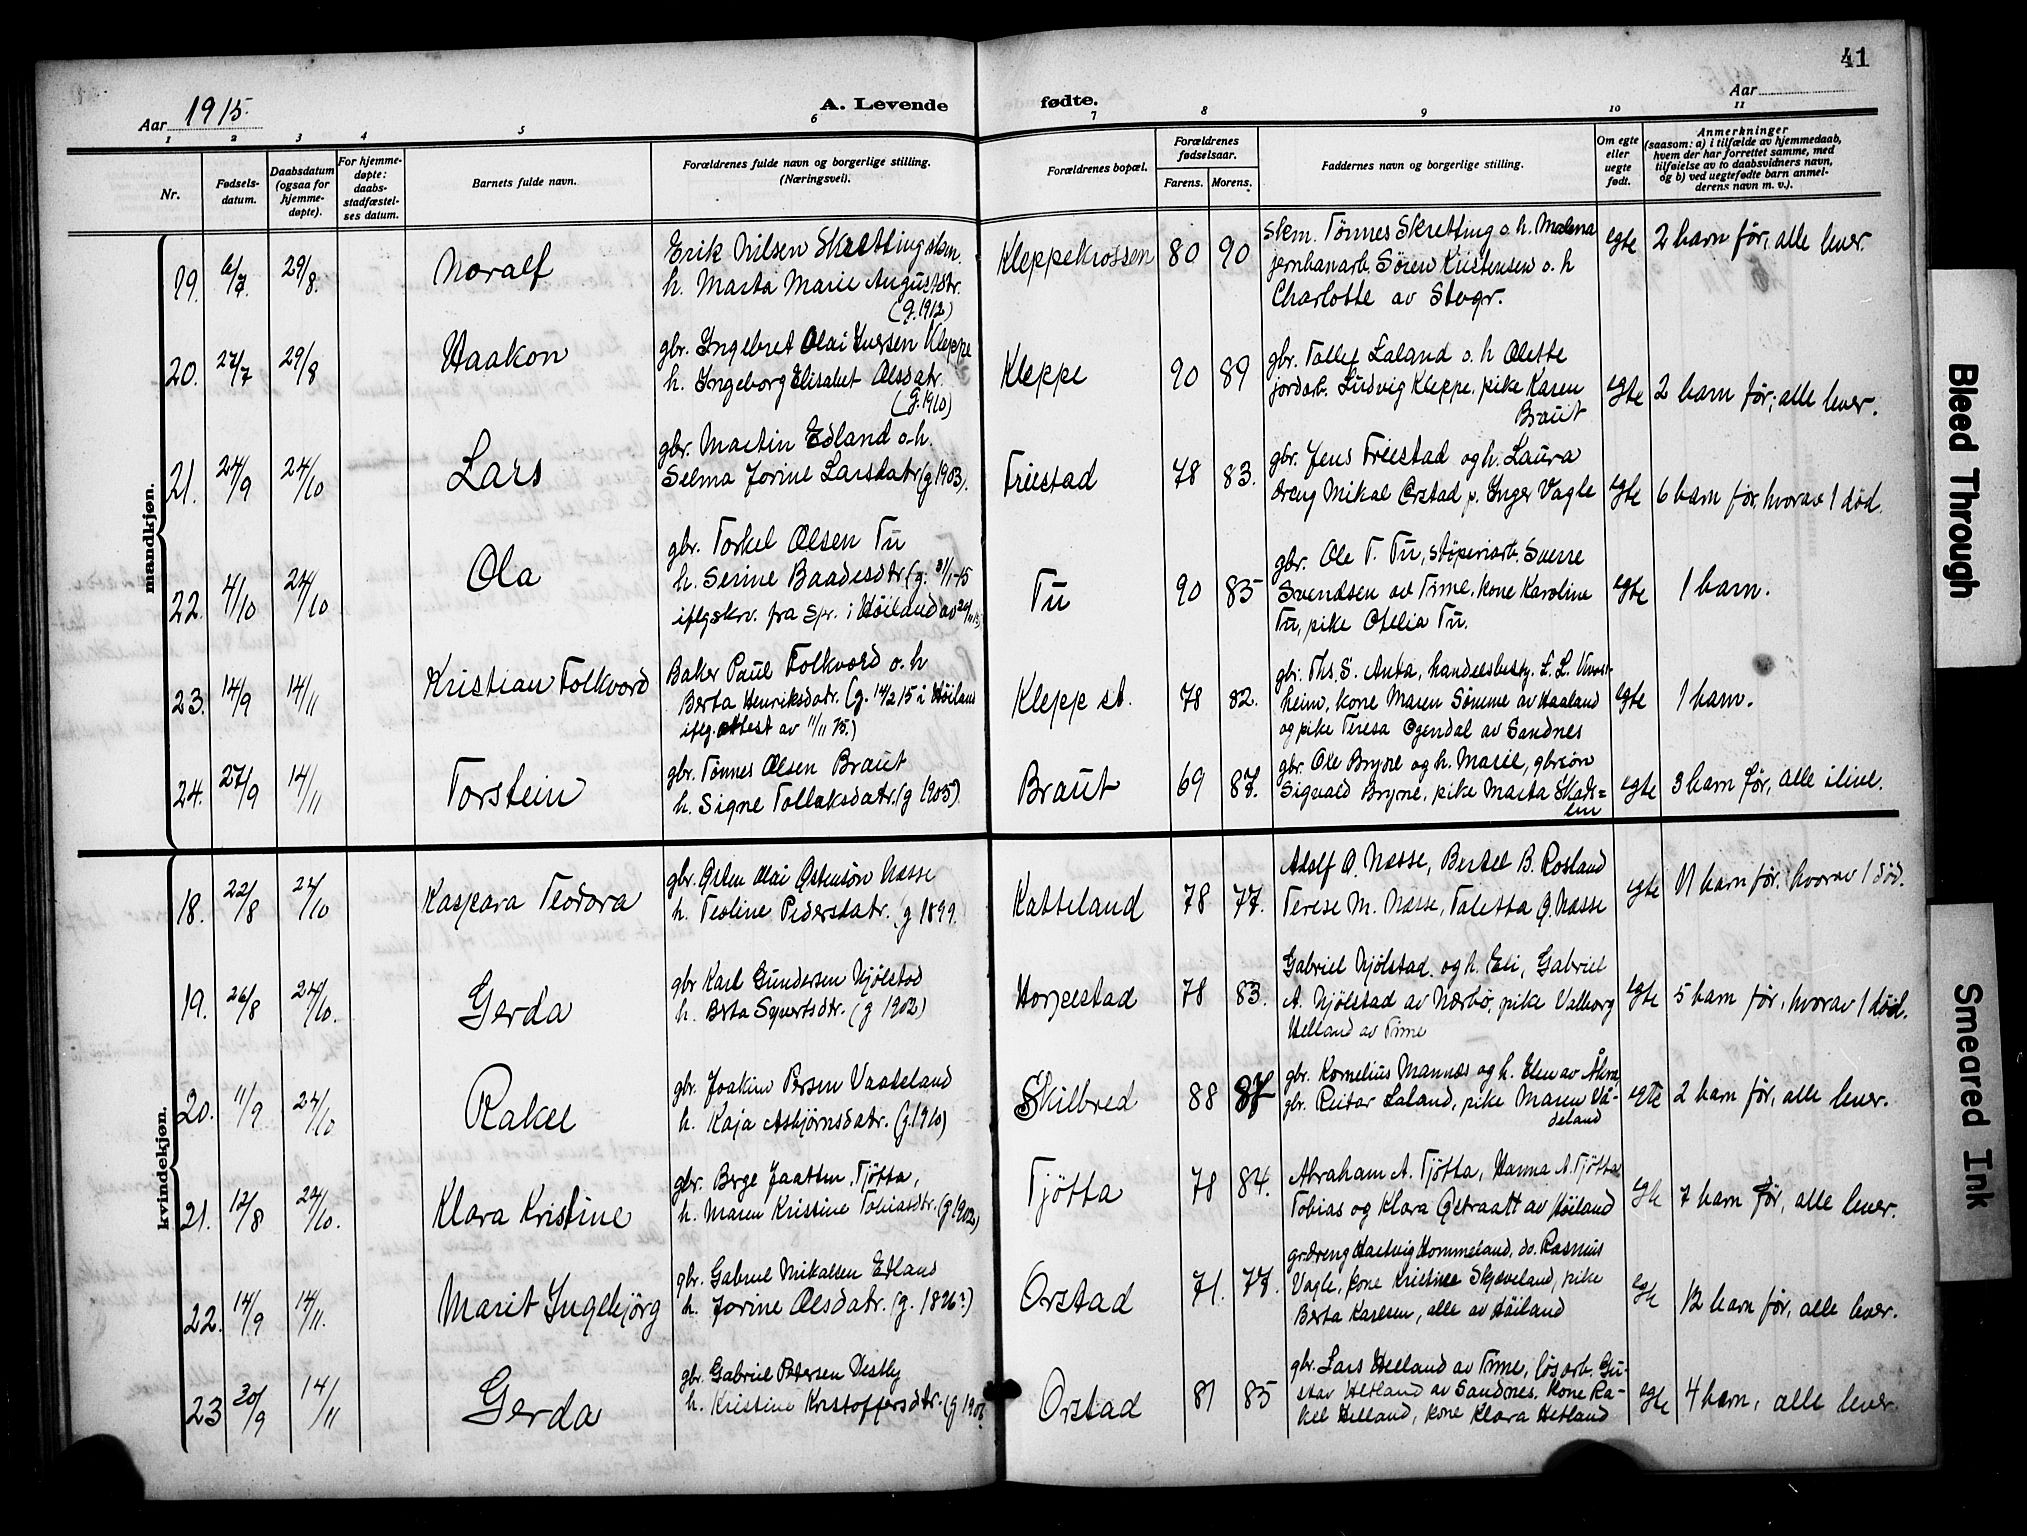 41
Aar 1915.
A. Levende fødte.
Aar
1 2 3 4 5 6 7 8 9 10 11
Nr.
Fødsels-
datum.
Daabsdatum
(ogsaa for
hjemme-
døpte).
For hjemme-
døpte:
daabs-
stadfæstel-
ses datum.
Barnets fulde navn.
Forældrenes fulde navn og borgerlige stilling.
(Næringsvei).
Forældrenes bopæl.
Forældrenes
fødselsaar.
Farens. Morens.
Faddernes navn og borgerlige stilling.
Om egte
eller
uegte
født.
Anmerkninger
(saasom: a) i tilfælde av hjemmedaab,
hvem der har forrettet samme, med
tilføielse av to daabsvidners navn,
og b) ved uegtefødte barn anmel-
derens navn m. v.).
mandkjøn.
19. 6/7 29/8. Noralf
Erik Nilsen Skretting skm.
h. Marta Marie Augustdtr.
(g. 1912)
Kleppekrossen 80 90
Skm. Tønnes Skretting o. h. Malena
jernbanarb. Søren Kristensen o. h
Charlotte av Stvgr.
egte 2 barn før, alle lever.
20. 27/7 29/8 Haakon
gbr. Ingebret Olai Iversen Kleppe
h. Ingeborg Elisabet Olsdatr.
(g. 1910)
Kleppe 90 89
gbr. Tollef Laland o. h Olette
jordarb. Ludvig Kleppe, pike Karen
Braut
egte 2 barn før; alle lever.
21. 24/9 24/10 Lars
gbr. Martin Edland o. h.
Selma Jorine Larsdatr (g 1903).
Friestad 78 83.
gbr. Jens Friestad og h. Laura
dreng Mikal Orstad p. Inger Vagle
egte 6 barn før, hvorav 1 død.
22. 4/10 24/10 Ola
gbr. Torkel Olsen Tu
h. Serine Baadesdtr (g. 31/1-15
iflg skr. fra Spr. i Høiland av
Tu 90 85
gbr. Ole T. Tu, støperiarb. Sverre
Svendsen av Time, kone Karoline
Tu, pike Otelia Tu.
egte 1 barn.
23. 14/9 14/11 Kristian Folkvord
Baker Paul Folkvord o. h
Berta Henriksdatr. (g. 14/2 15 i Høiland
iflg. attest av 11/11 15.)
Klepp st. 78 82.
gbr. Ths. S. Anda, handelsbesty. L. L.
heim, kone Maren Sømme av Haaland
og pike Teresa Ogendal av Sandnes
egte 1 barn.
24. 27/9 14/11 Torstein
gbr. Tønnes Olsen Braut
h. Signe Tollaksdatr. (g 1905)
Braut 69 87.
gbr. Ole Bryne og h. Marie, gbrsøn
Sigvald Bryne, pike Marta Skads=
lin
egte 3 barn før, alle ilive.
kvindekjøn.
18. 22/8 24/10 Kaspara Teodora
gbr. Østen Olai Østensøn Næsse
h. Teoline Pedersdatr. (g 1899.
Katteland 78 77.
Adolf Ø. Næsse, Bertel B. Rosland
Terese M. Næsse, Taletta Ø. Næsse
egte 11 barn før, hvorav 1 død.
19. 26/8 24/10. Gerda
gbr Karl Gundersen Njølstad
h. Berta Sjvertsdtr. (g 1902)
Horpestad 78 83.
Gabriel Njølstad og h. Eli, Gabriel
A. Njølstad av Nærbø, pike Valborg
Helland av Time
egte 5 barn før, hvorav 1 død.
20. 11/9 24/10 Rakel
gbr. Joakim Persen Vaadeland
h. Kaja Asbjørnsdatr. (g. 1910)
Skilbred 88 87
gbr. Kornelius Mannes og h. Elen av Åkra,
gbr. Reidar Laland, pike Maren Vå-
deland
egte 2 barn før, alle lever.
21. 12/8 24/10. Klara Kristine
gbr. Berge Jaatten Tjøtta,
h. Maren Kristine Tobiasdtr. (g 1902)
Tjøtta 78 84.
Abraham A. Tjøtta, Hanna A. Tjøtta
Tobias og Klara Østraatt av Høiland
egte 7 barn før, alle lever.
22. 14/9 14/11. Marit Ingebjørg
gbr. Gabriel Mikalsen Edland
h. Jorine Olsdatr. (g. 1896?)
Orstad 71. 77.
grdreng Hartvig Hommeland, do. Rasmus
Vagle, kone Kristine Skjæveland, pike
Berta Karlsen, alle av Høiland
egte 12 barn før, alle lever.
23 30/9 14/11 Gerda
gbr. Gabriel Petersen Vestly
h. Kristine Kristoffersdtr. (g 1908
Orstad 81 85
gbr. Lars Helland av Time, løsarb. Gu-
stav Hetland av Sandnes, kone Ra-
kel Helland, kone Klara Hetland
egte 4 barn, alle lever.
Bleed Through
Smeared Ink